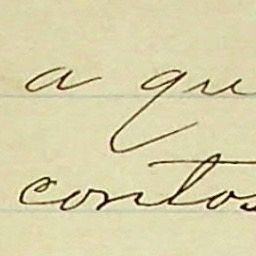 a qu
contos